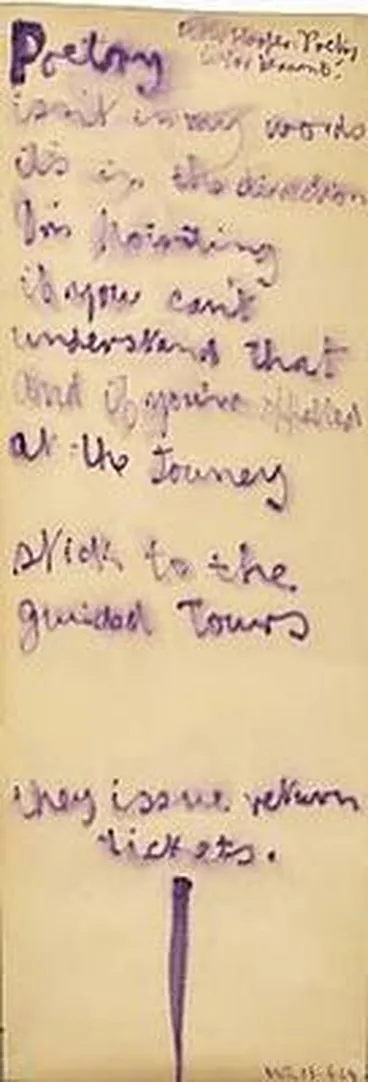 Poetry
isn't in my words
it's in the direction
I'm pointing
if you can't
understand that
and if you're
at the Journey
stick to the
guided Tours
they issue return
tickets.